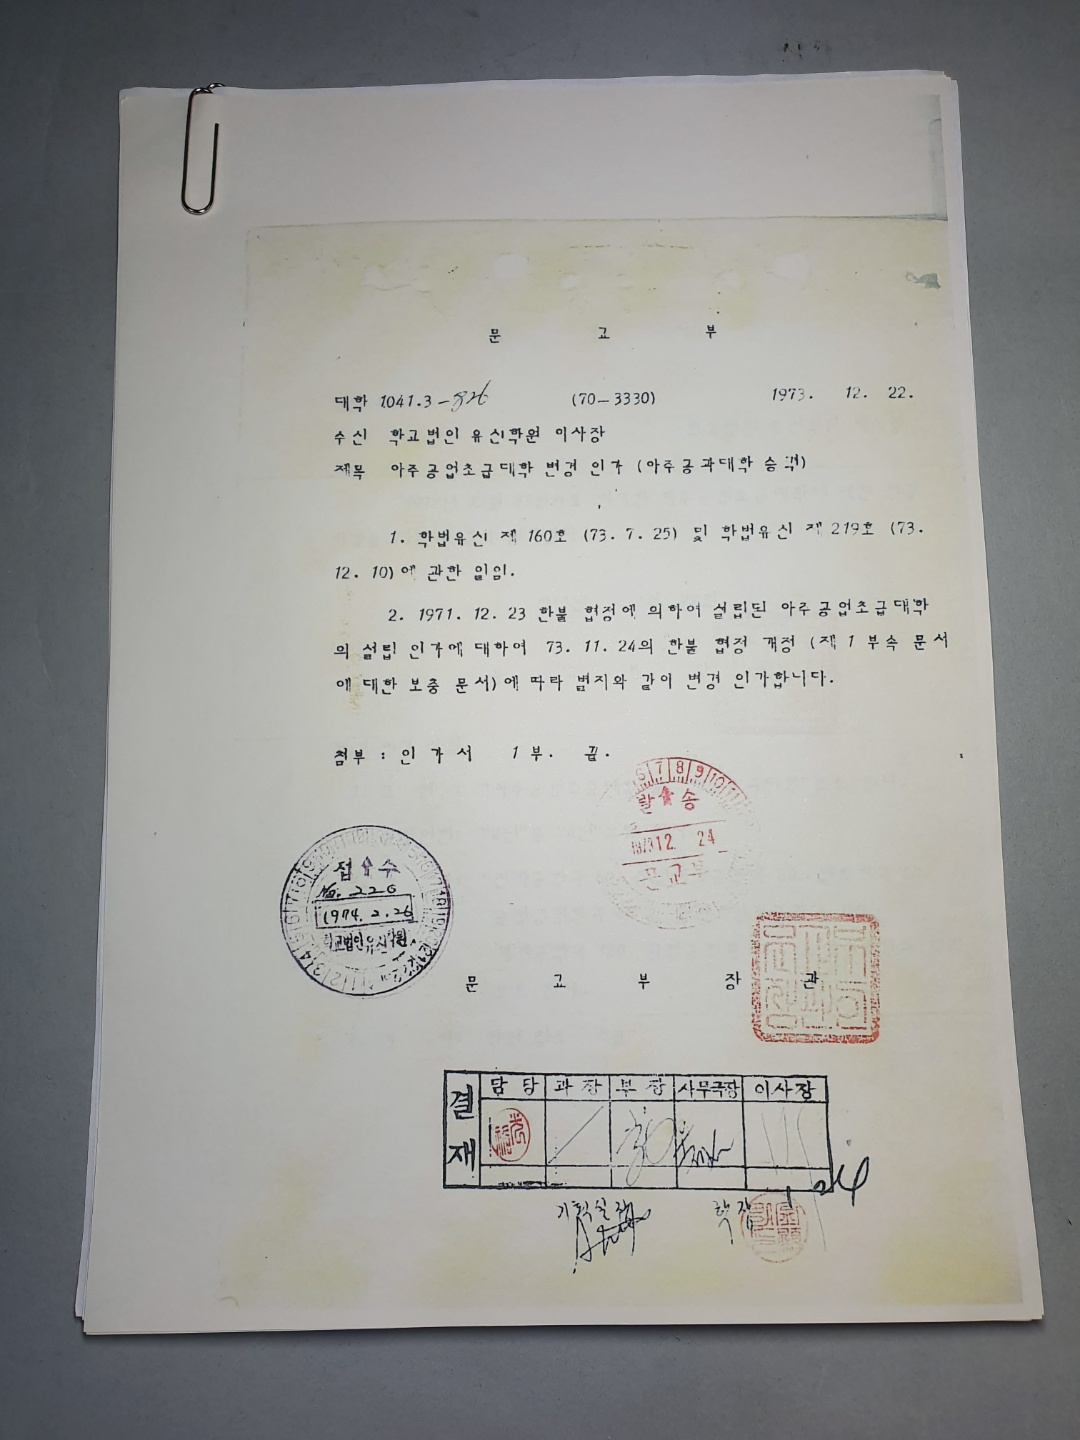 문 교 부
대학 1041.3- (70-3330) 1973. 12. 22.
수신 학교법인 유신학원 이사장
제목 아주공업초급대학 변경 인가 (아주공과대학 승격)
1. 학법유신 제160호 (73. 7. 25) 및 학법유신 제219호 (73.
12. 10)에 관한 일임.
2. 1971. 12. 23 한불 협정에 의하여 설립된 아주공업초급대학
의 설립 인가에 대하여 73. 11. 24의 한불 협정 개정 (제1 부속 문서
에 대한 보충 문서)에 따라 별지와 같이 변경 인가합니다.
첨부 : 인가서 1부. 끝.
발송
1973 12. 24
문교부
접수
No. 226
1974. 2. 26
학교법인유신학원
문 교 부 장 관
결재
담당 과장 부장 사무국장 이사장
기획실장 학장